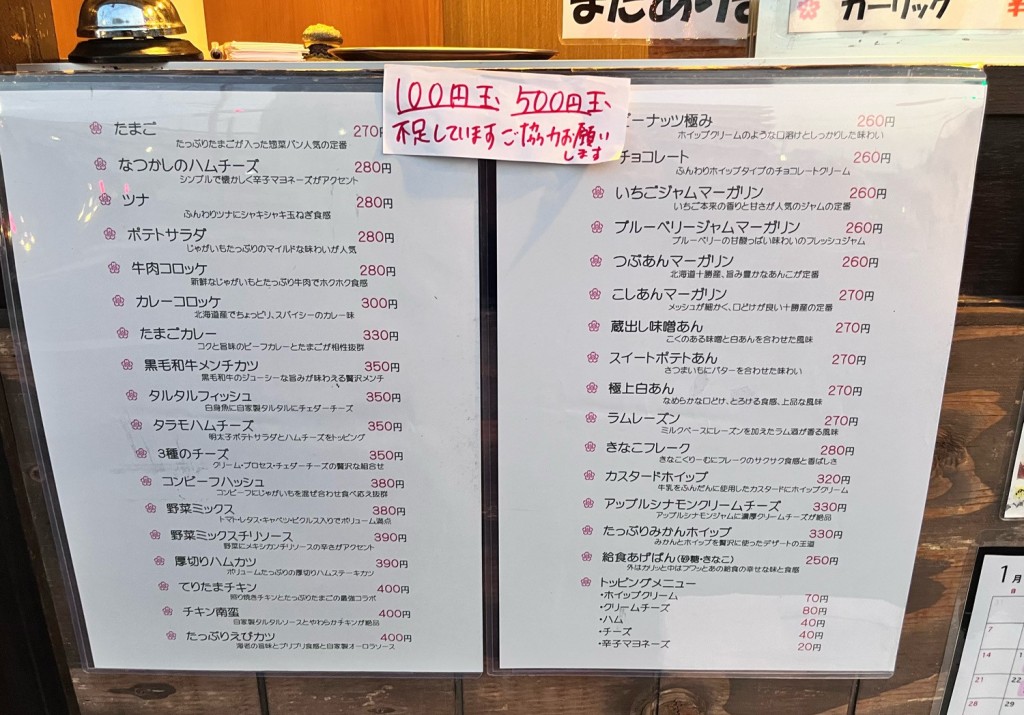 ガーリック
100円玉、500円玉、
不足しています ご協力お願い
します
たまご 270円
たっぷりたまごが入った惣菜パン人気の定番
なつかしのハムチーズ 280円
シンプルで懐かしく辛子マヨネーズがアクセント
ツナ 280円
ふんわりツナにシャキシャキ玉ねぎ食感
ポテトサラダ 280円
じゃがいもたっぷりのマイルドな味わいが人気
牛肉コロッケ 280円
新鮮なじゃがいもとたっぷり牛肉でホクホク食感
カレーコロッケ 300円
北海道産でちょっピリ、スパイシーのカレー味
たまごカレー 330円
コクと旨味のビーフカレーとたまごが相性抜群
黒毛和牛メンチカツ 350円
黒毛和牛のジューシーな旨みが味わえる贅沢メンチ
タルタルフィッシュ 350円
白身魚に自家製タルタルにチェダーチーズ
タラモハムチーズ 350円
明太子ポテトサラダとハムチーズをトッピング
3種のチーズ 350円
クリーム・プロセス・チェダーチーズの贅沢な組合せ
コンビーフハッシュ 380円
コンビーフにじゃがいもを混ぜ合わせ食べ応え抜群
野菜ミックス 380円
トマト・レタス・キャベツ・ピクルス入りでボリューム満点
野菜ミックスチリソース 390円
野菜にメキシカンチリソースの辛さがアクセント
厚切りハムカツ 390円
ボリュームたっぷりの厚切りハムステーキカツ
てりたまチキン 400円
照り焼きチキンとたっぷりたまごの最強コラボ
チキン南蛮 400円
自家製タルタルソースとやわらかチキンが絶品
たっぷりえびカツ 400円
海老の旨味とプリプリ食感と自家製オーロラソース
ーナッツ極み 260円
ホイップクリームのような口溶けとしっかりした味わい
チョコレート 260円
ふんわりホイップタイプのチョコレートクリーム
いちごジャムマーガリン 260円
いちご本来の香りと甘さが人気のジャムの定番
ブルーベリージャムマーガリン 260円
ブルーベリーの甘酸っぱい味わいのフレッシュジャム
つぶあんマーガリン 260円
北海道十勝産、旨み豊かなあんこが定番
こしあんマーガリン 270円
メッシュが細かく、口どけが良い十勝産の定番
蔵出し味噌あん 270円
こくのある味噌と白あんを合わせた風味
スイートポテトあん 270円
さつまいもにバターを合わせた味わい
極上白あん 270円
なめらかな口どけ、とろける食感、上品な風味
ラムレーズン 270円
ミルクベースにレーズンを加えたラム酒が香る風味
きなこフレーク 280円
きなこくりーむにフレークのサクサク食感と香ばしさ
カスタードホイップ 320円
牛乳をふんだんに使用したカスタードにホイップクリーム
アップルシナモンクリームチーズ 330円
アップルシナモンジャムに濃厚クリームチーズが絶品
たっぷりみかんホイップ 330円
みかんとホイップを贅沢に使ったデザートの王道
給食あげぱん(砂糖・きなこ) 250円
外はカリッと中はフワッとあの給食の幸せな味と食感
トッピングメニュー
・ホイップクリーム 70円
・クリームチーズ 80円
・ハム 40円
・チーズ 40円
・辛子マヨネーズ 20円
1月
日
7
14
21 22
28 29